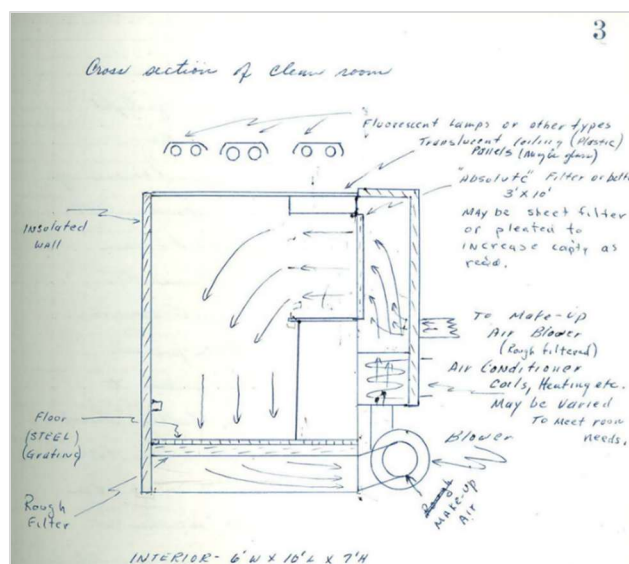 3
Cross section of clean room
Fluorescent Lamps or other types
Translucent Ceiling (Plastic)
Panels (Maybe glass)
"Absolute" Filter or better
3' x 10'
MAY be sheet filter
or pleated to
increase capty as
reqd.
INSULATED
WALL
To Make-up
Air Blower
(Rough filtered)
Air Conditioner
Coils, Heating etc.
May be varied
To Meet room
needs.
Floor
(STEEL)
(Grating)
Blower
Rough
Filter
MAKE-UP
AIR
INTERIOR - 6' W x 10' L x 7' H